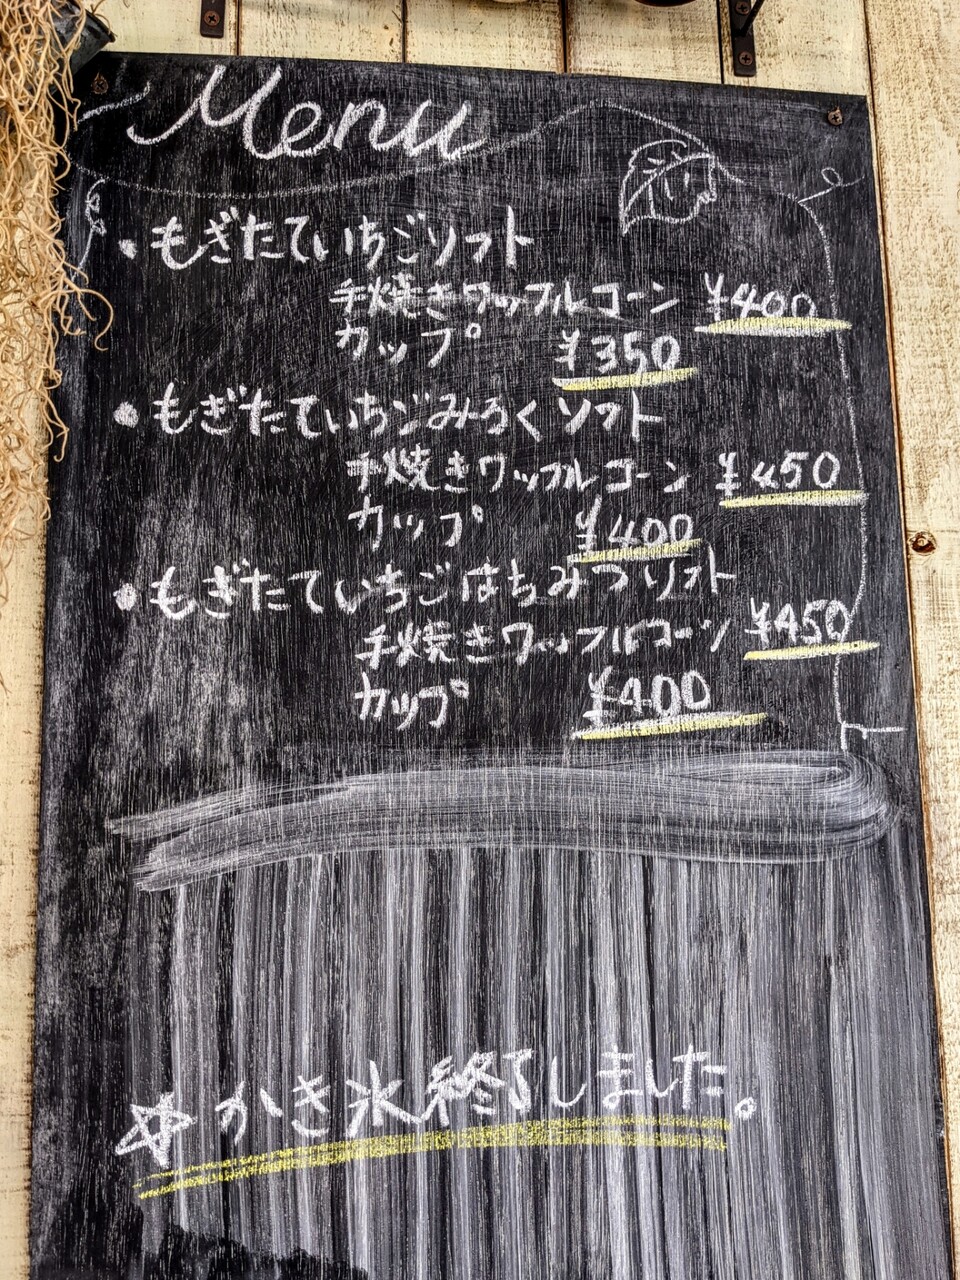 Menu
・もぎたていちごソフト
手焼きワッフルコーン ¥400
カップ ¥350
・もぎたていちごみるくソフト
手焼きワッフルコーン ¥450
カップ ¥400
・もぎたていちごはちみつソフト
手焼きワッフルコーン ¥450
カップ ¥400
☆かき氷終了しました。